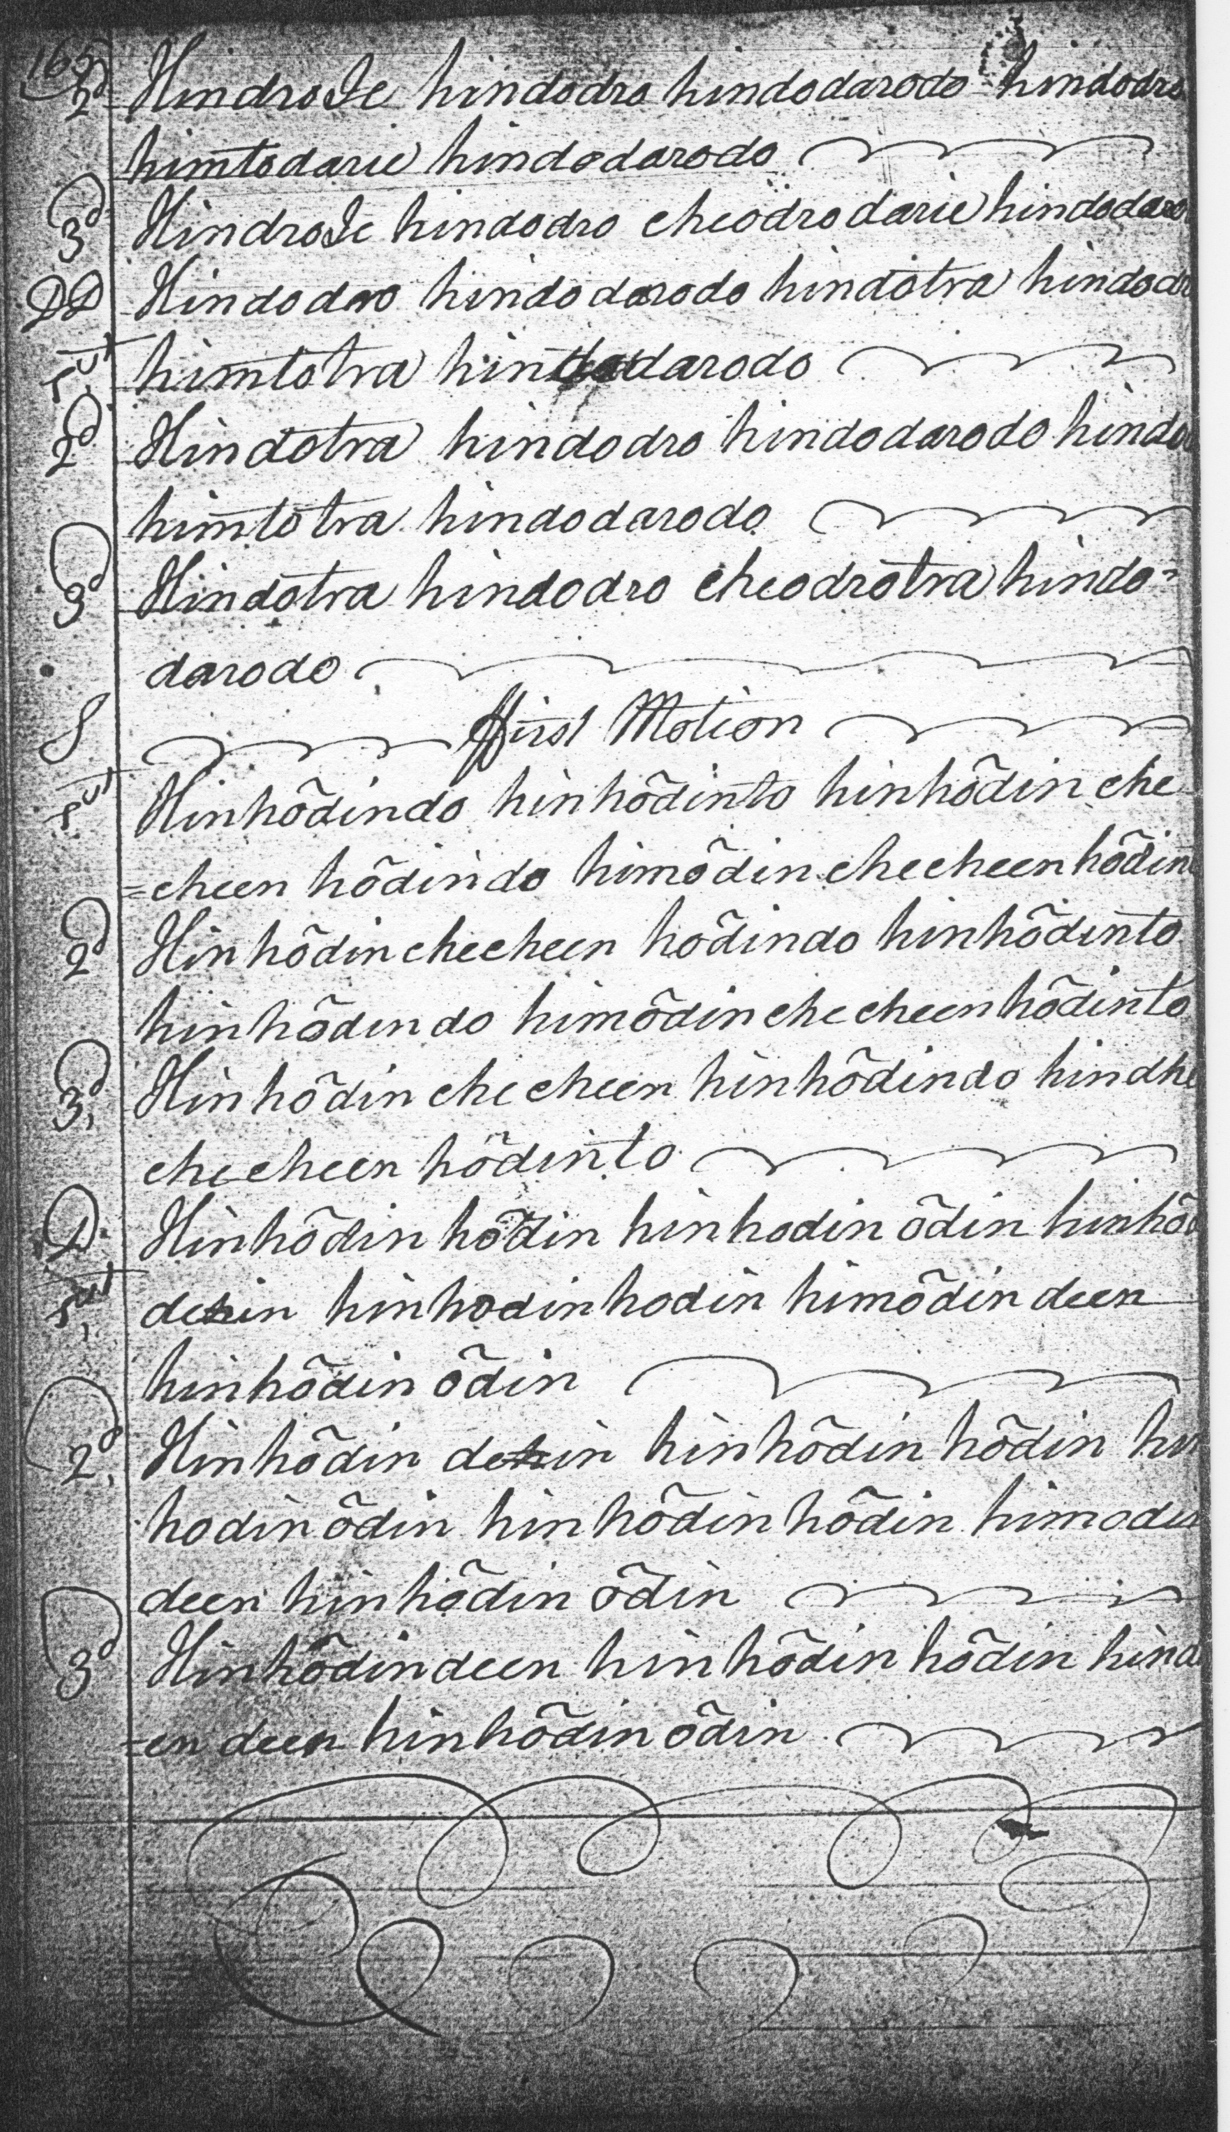 165
2d Hindrole hindodro hindodarodo hindodro
himtodarie hindodarodo
3d Hindrole hindodro cheodrodarie hindodaro
DD Hindodro hindodarodo hindotra hindodr
1ut himtotra hindodarodo
2d Hindotra hindodro hindodarodo hindo
himtotra hindodarodo
3d Hindotra hindodro cheodrotra hindo=
darodo
S ffirst Motion
1ut Hinhõdindo hinhõdinto hinhõdin che
=cheen hõdindo himõdin checheen hõdin
2d Hinhõdin checheen hõdindo hinhõdinto
hinhõdindo himõdin checheen hõdinto
3d Hinhõdin checheen hinhõdindo hindhe
checheen hõdinto
D Hinhõdin hõdin hinhodin õdin hinhõ
1ut dehin hinhodin hodin himõdin deen
hinhõdin õdin
2d Hinhõdin dehin hinhõdin hõdin hin
hodin õdin hinhõdin hõdin himodin
deen hinhõdin õdin
3d Hinhõdin deen hinhõdin hõdin hind
=en deen hinhõdin õdin